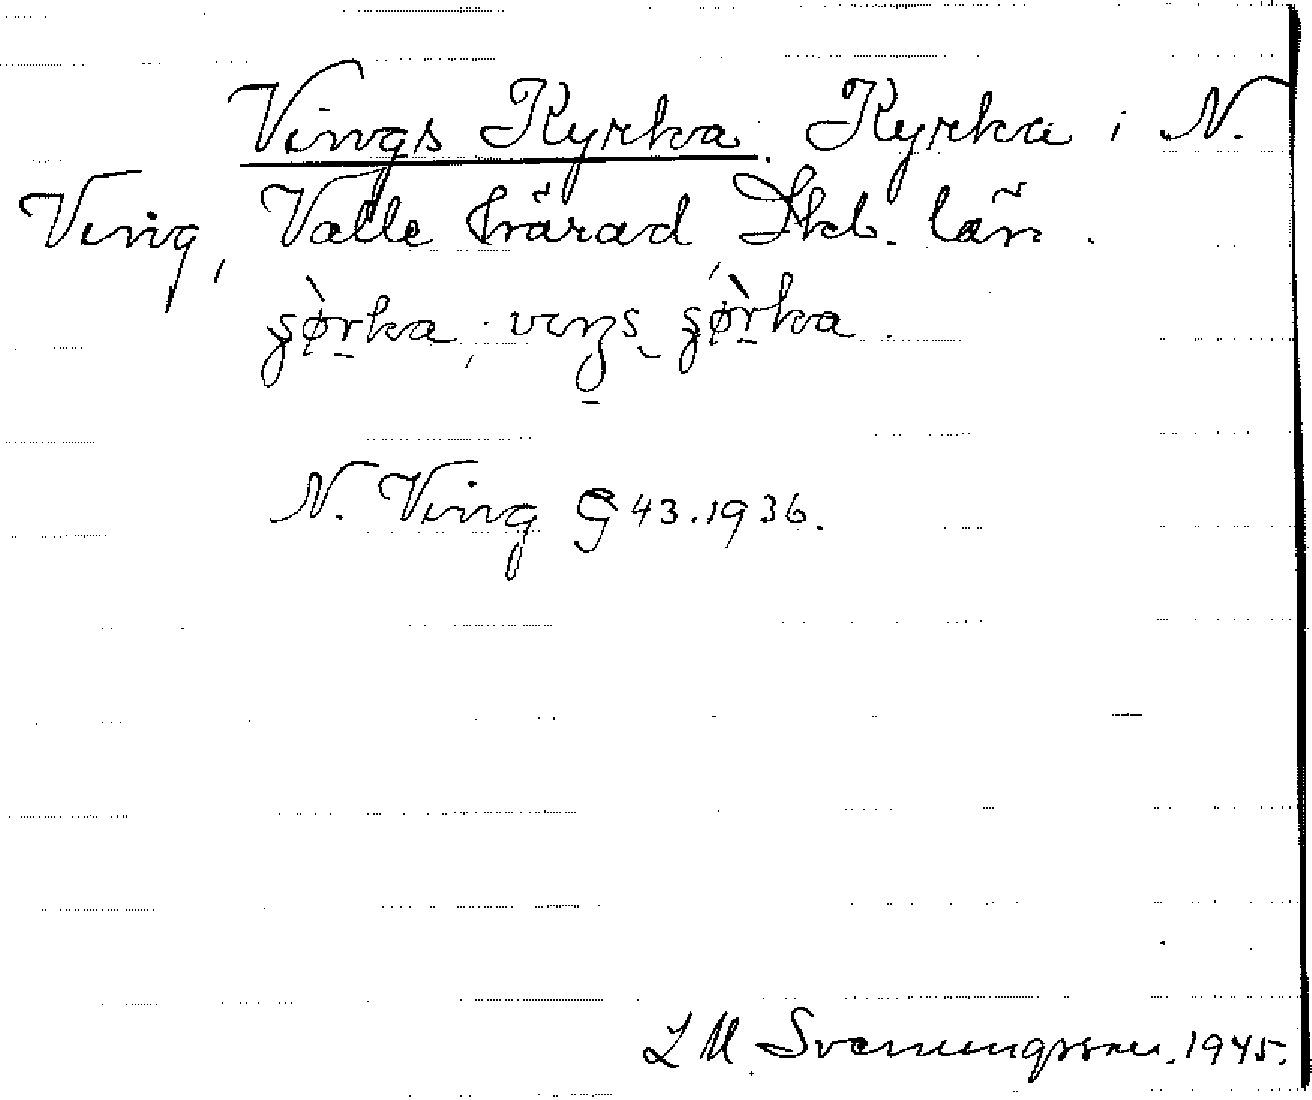 Vings Kyrka. Kyrka i N.
Ving, Valle härad, Skb. län.
şø̀rka, veŋs şø̀rka.
N. Ving G 43.1936.
L M Svenungsson. 1945.